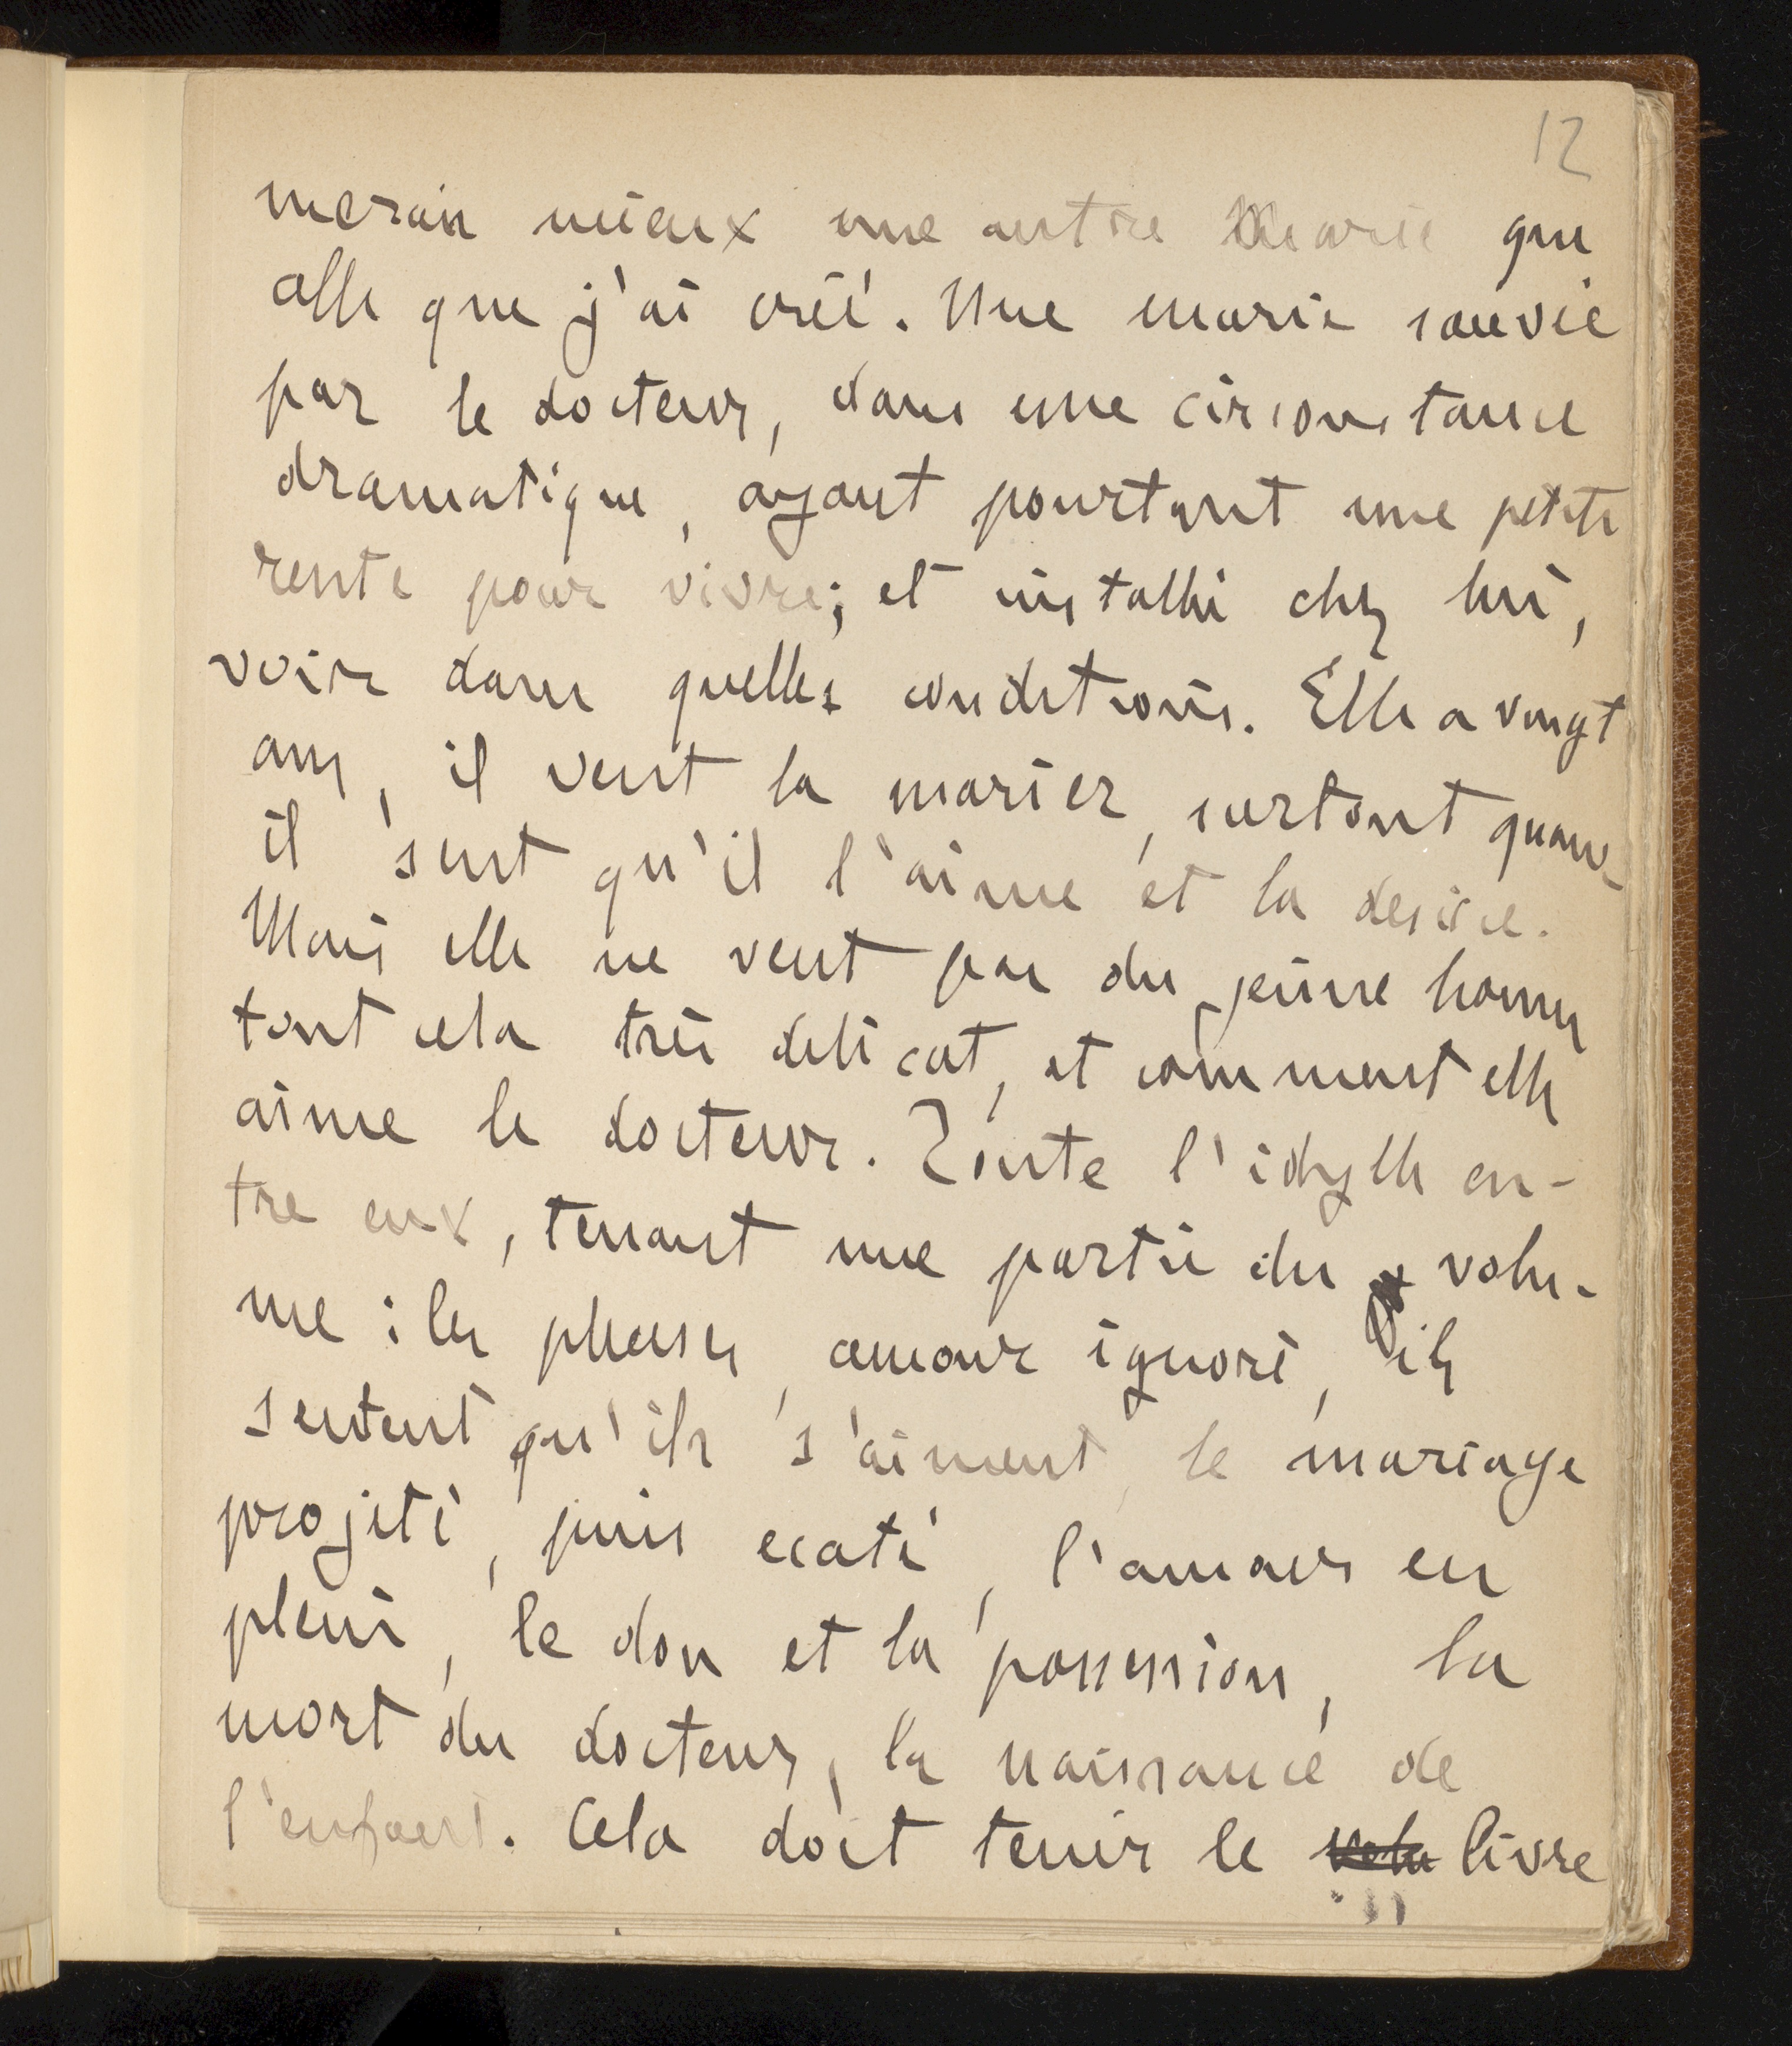 12
merais mieux une autre Marie que
celle que j'ai créé. Une marie sauvée
par le docteur, dans une circonstance
dramatique, ayant pourtant une petite
rente pour vivre; et installée chez lui,
voir dans quelles conditions. Elle a vingt
ans, il veut la marier, surtout quand
il sent qu'il l'aime et la desire.
Mais elle ne veut pas du jeune homme
tout cela très délicat, et comment elle
aime le docteur. Toute l'idylle en-
tre eux, tenant une partie du volu-
me : les phases, amour ignoré, ils
sentent qu'ils s'aiment, le mariage
projeté, puis ecaté, l'amour en
plein, le don et la possession, la
mort du docteur, la naissance de
l'enfant. Cela doit tenir le volu livre